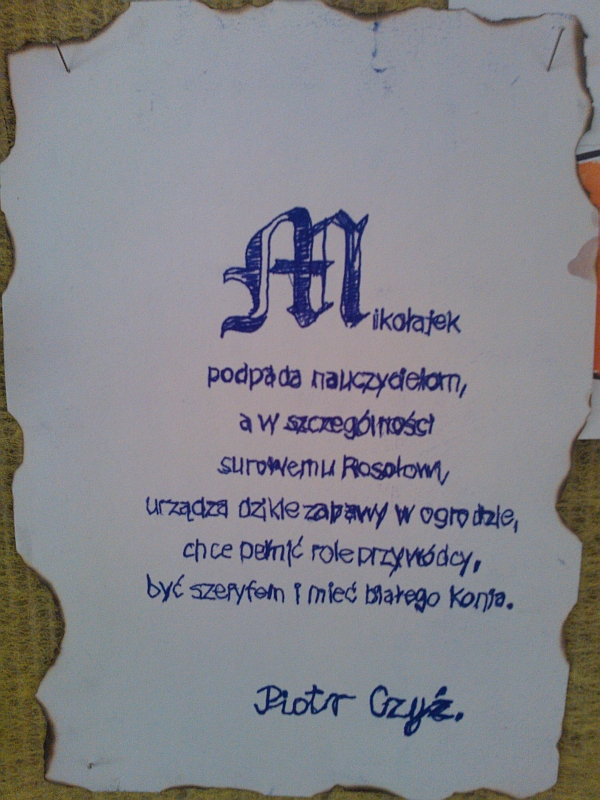 Mikołajek
podpada nauczycielom,
a w szczególności
surowemu Rosołowi,
urządza dzikie zabawy w ogrodzie,
chce pełnić role przywódcy,
być szeryfem i mieć białego konia.
Piotr Czyż.